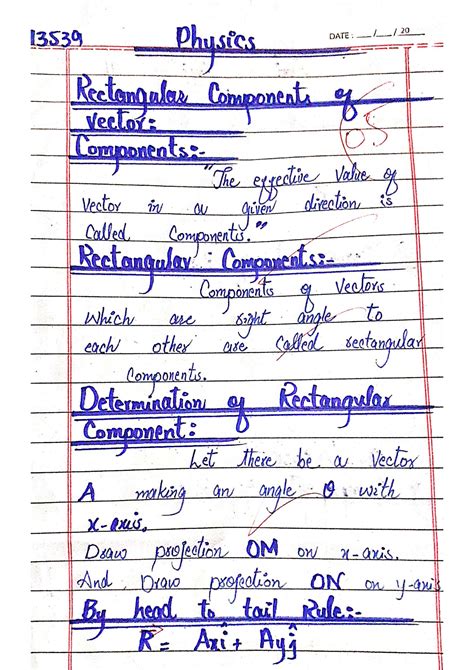 13539 Physics DATE: __/__/20__
Rectangular Components of
vector:
05
Components:-
"The effective value of
vector in a given direction is
Called Components."
Rectangular Components:-
Components of Vectors
Which are right angle to
each other are Called rectangular
Components.
Determination of Rectangular
Component:
Let there be a vector
A making an angle θ with
x-axis.
Draw projection OM on x-axis.
And Draw projection ON on y-axis
By head to tail Rule:-
R = Axî + Ayĵ